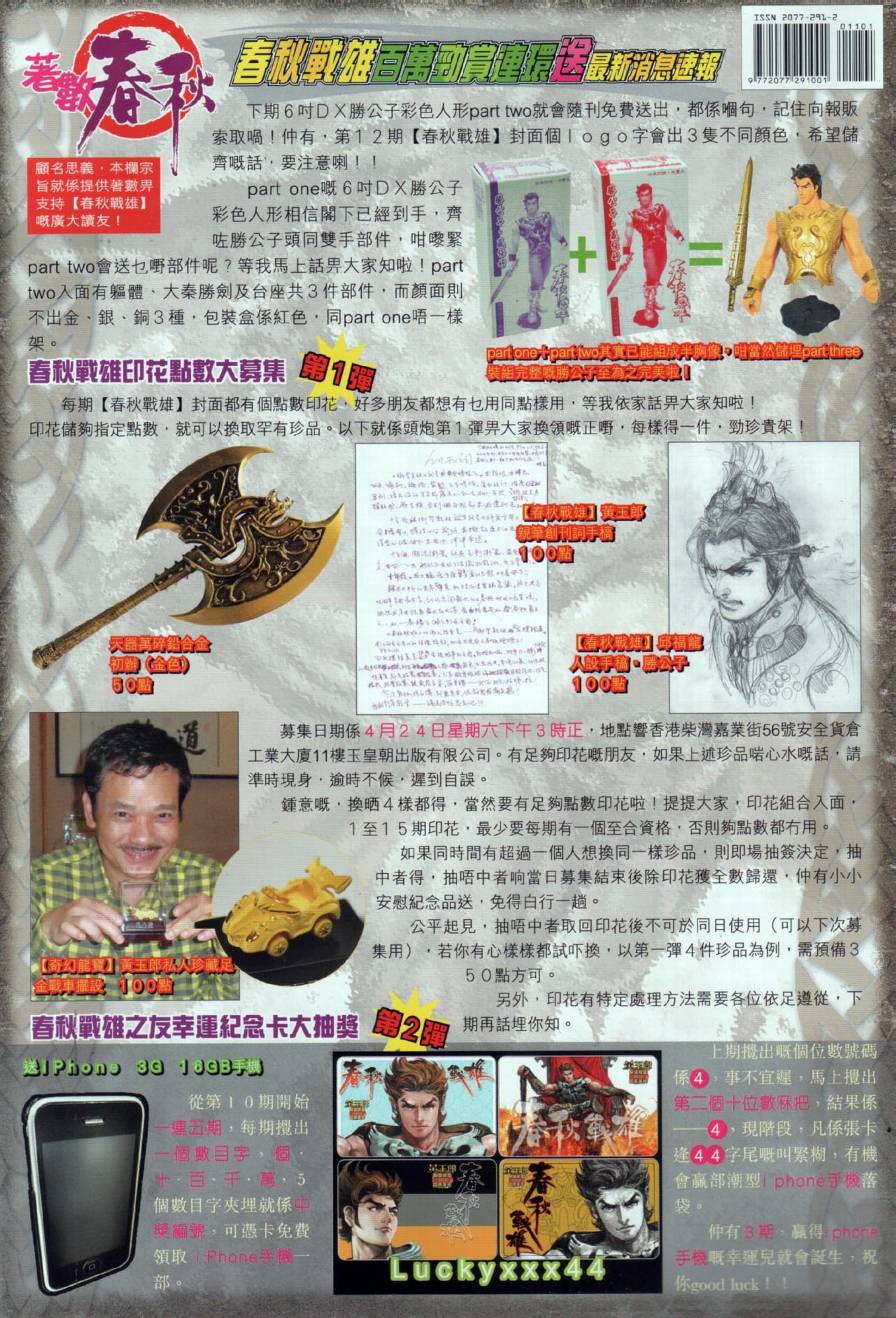 ISSN 2077-291-2
01101
9 772077 291001
著數春秋
春秋戰雄百萬勁賞連環送最新消息速報
顧名思義，本欄宗
旨就係提供著數畀
支持【春秋戰雄】
嘅廣大讀友！
下期６吋ＤＸ勝公子彩色人形part two就會隨刊免費送出，都係嗰句，記住向報販
索取喎！仲有，第１２期【春秋戰雄】封面個ｌｏｇｏ字會出３隻不同顏色，希望儲
齊嘅話，要注意喇！！
part one嘅６吋ＤＸ勝公子
彩色人形相信閣下已經到手，齊
佐勝公子頭同雙手部件，咁嚟緊
part two會送乜嘢部件呢？等我馬上話畀大家知啦！part
two入面有軀體、大秦勝劍及台座共３件部件，而顏面則
不出金、銀、銅３種，包裝盒係紅色，同part one唔一樣
架。
part one＋part two其實已能組成半胸像，咁當然儲埋part three
裝組完整嘅勝公子至為之完美啦！
春秋戰雄印花點數大募集
第1彈
每期【春秋戰雄】封面都有個點數印花，好多朋友都想有乜用同點樣用，等我依家話畀大家知啦！
印花儲夠指定點數，就可以換取罕有珍品。以下就係頭炮第１彈畀大家換領嘅正嘢，每樣得一件，勁珍貴架！
天器萬碎鉛合金
初辦（金色）
５０點
【春秋戰雄】黃玉郎
親筆創刊詞手稿
１００點
【春秋戰雄】邱福龍
人設手稿・勝公子
１００點
募集日期係４月２４日星期六下午３時正，地點響香港柴灣嘉業街56號安全貨倉
工業大廈11樓玉皇朝出版有限公司。有足夠印花嘅朋友，如果上述珍品啱心水嘅話，請
準時現身，逾時不候，遲到自誤。
鍾意嘅，換晒４樣都得，當然要有足夠點數印花啦！提提大家，印花組合入面，
１至１５期印花，最少要每期有一個至合資格，否則夠點數都冇用。
如果同時間有超過一個人想換同一樣珍品，則即場抽簽決定，抽
中者得，抽唔中者响當日募集結束後除印花獲全數歸還，仲有小小
安慰紀念品送，免得白行一趟。
公平起見，抽唔中者取回印花後不可於同日使用（可以下次募
集用），若你有心樣樣都試吓換，以第一彈４件珍品為例，需預備３
５０點方可。
另外，印花有特定處理方法需要各位依足遵從，下
期再話埋你知。
【奇幻龍寶】黃玉郎私人珍藏足
金戰車擺設　１００點
春秋戰雄之友幸運紀念卡大抽獎
第2彈
送IPhone 3G 16GB手機
從第１０期開始
一連五期，每期攪出
一個數目字，個、
十、百、千、萬，５
個數目字夾埋就係中
獎編號，可憑卡免費
領取ｉPhone手機一
部。
春秋戰雄
春秋戰雄
春秋戰雄
春秋戰雄
Luckyxxx44
上期攪出嘅個位數號碼
係4，事不宜遲，馬上攪出
第二個十位數冧把，結果係
——4，現階段，凡係張卡
逢44字尾嘅叫緊糊，有機
會贏部潮型i phone手機落
袋。
仲有３期，贏得i phone
手機嘅幸運兒就會誕生，祝
你good luck！！